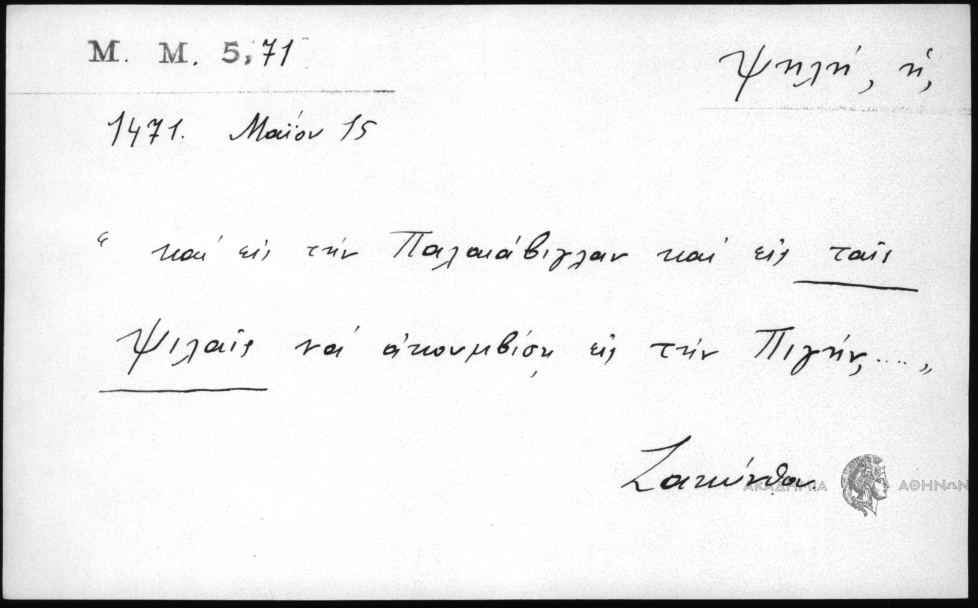 M. M. 5,71
Ψηλή, ἡ,
1471. Μαΐου 15
“ καί εἰς τήν Παλαιάβιγλαν καί εἰς ταῖς
Ψιλαῖς νά ἀκουμβίσῃ εἰς τήν Πιγήν,....„
Ζακύνθου.
ΑΚΑΔΗΜΙΑ ΑΘΗΝΩΝ